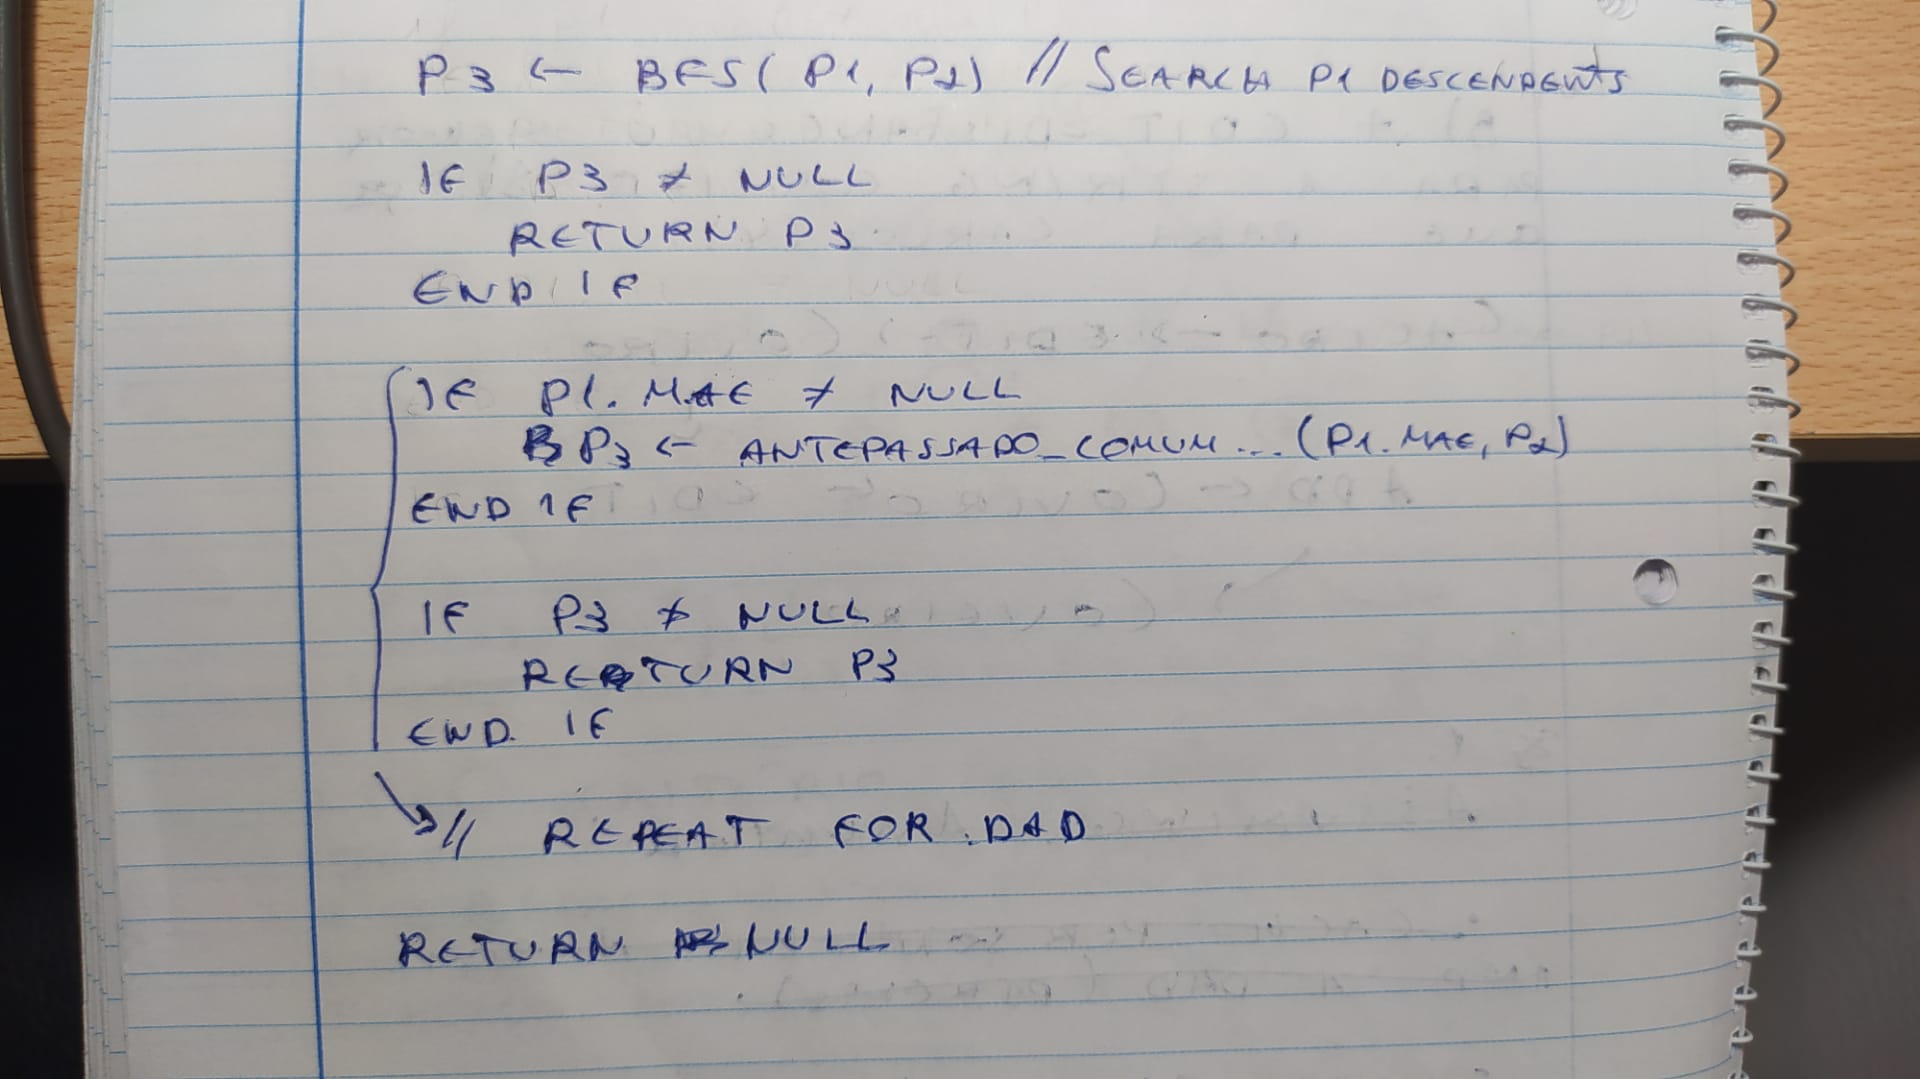 P3 ← BFS(P1, P2) // SEARCH P1 DESCENDENTS
IF P3 ≠ NULL
RETURN P3
END IF
IF P1.MAE ≠ NULL
P3 ← ANTEPASSADO_COMUM...(P1.MAE, P2)
END IF
IF P3 ≠ NULL
RETURN P3
END IF
// REPEAT FOR DAD
RETURN NULL